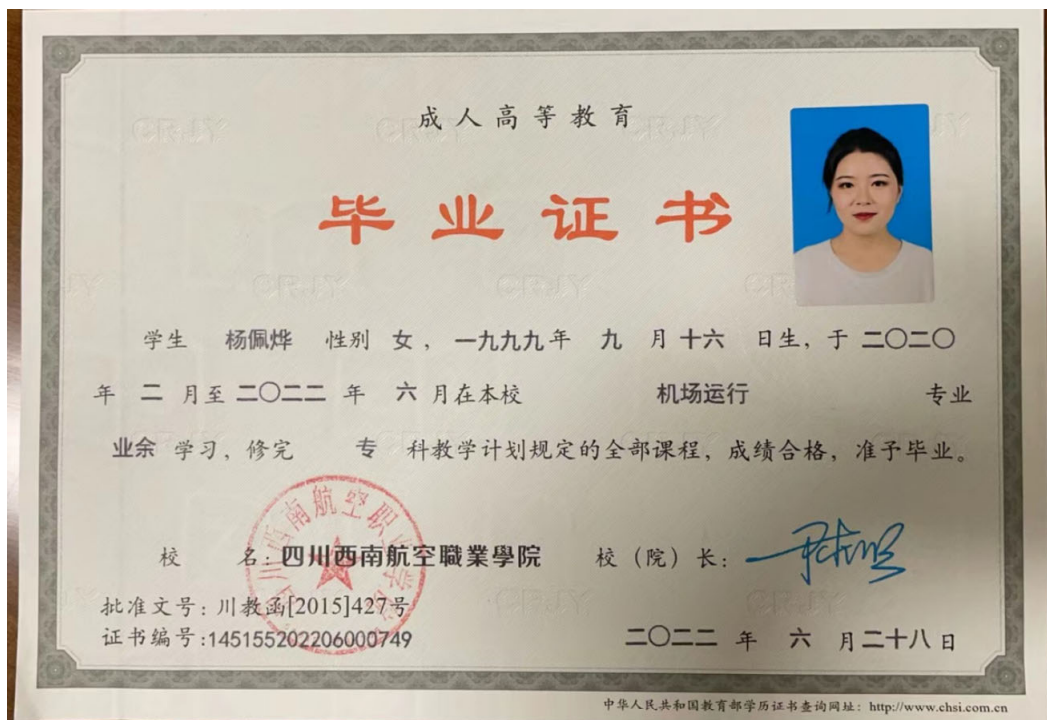 成人高等教育
毕业证书
学生 杨佩烨 性别 女，一九九九年 九 月十六 日生，于 二〇二〇
年 二 月至二〇二二 年 六 月在本校 机场运行 专业
业余 学习，修完 专 科教学计划规定的全部课程，成绩合格，准予毕业。
校 名：四川西南航空職業學院 校（院）长：
批准文号：川教函[2015]427号
证书编号：145155202206000749
二〇二二 年 六 月二十八日
四川西南航空职业学院
中华人民共和国教育部学历证书查询网址：http://www.chsi.com.cn
CRJY